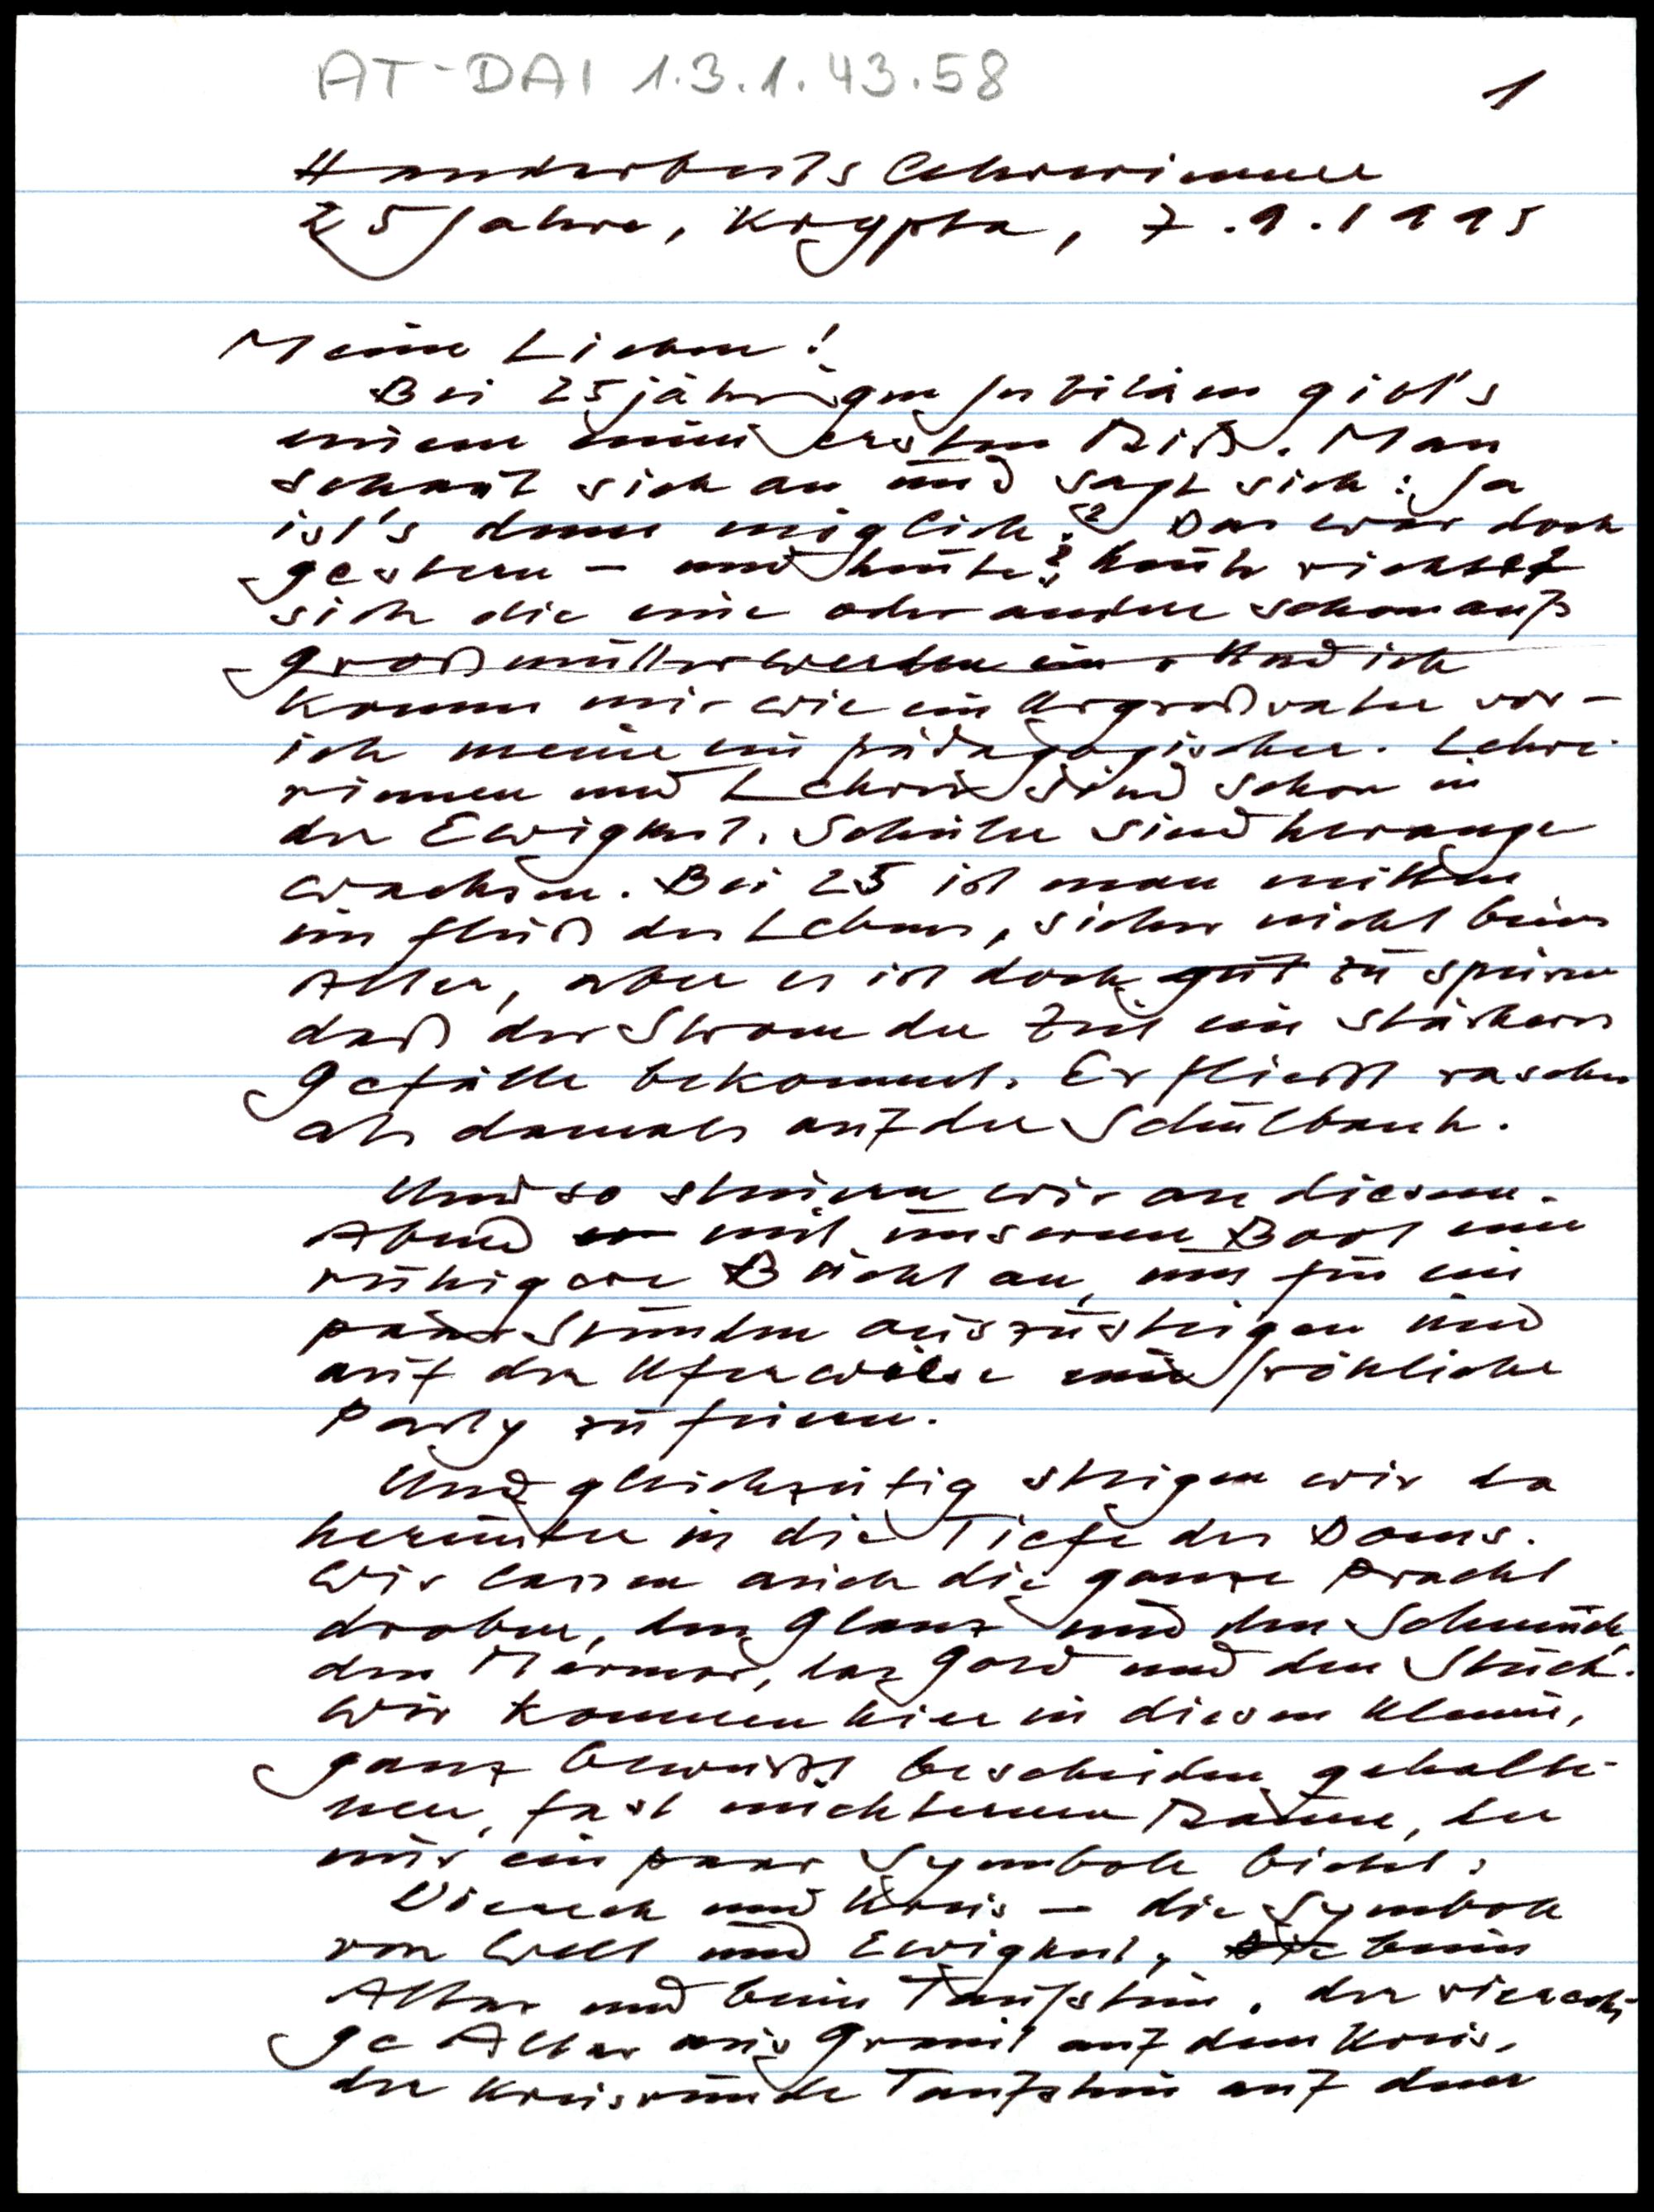 AT-DAI 1.3.1.43.58
1
Handarbeitslehrerinnen
25 Jahre, Krypta, 7.9.1995
Meine Lieben!
Bei 25jährigen Jubiläen gibt's
einen ersten Riß. Man
schaut sich an und sagt sich: Ja
ist's denn möglich? Das war doch
gestern – und heute? Heute richtet
sich die eine oder andere schon aufs
Großmutterwerden ein. Und ich
komme mir wie ein Urgroßvater vor –
ich meine ein pädagogischer. Lehre-
rinnen und Lehrer sind schon in
der Ewigkeit. Schüler sind herange
wachsen. Bei 25 ist man mitten
im Fluß des Lebens, sicher nicht beim
Alter, aber es ist doch gut zu spüren
daß der Strom der Zeit ein stärkeres
Gefälle bekommt. Er fließt rascher
als damals auf der Schulbank.
Und so steuern wir an diesem
Abend mit unserem Boot eine
ruhigere Bucht an, um für ein
paar Stunden auszusteigen und
auf der Uferwiese eine fröhliche
Party zu feiern.
Und gleichzeitig steigen wir da
herunter in die Tiefe des Doms.
Wir lassen auch die ganze Pracht
droben, den Glanz und den Schmuck,
den Marmor, das Gold und den Stuck.
Wir kommen hier in diesen kleinen,
ganz bewußt bescheiden gehalte-
nen, fast nüchternen Raum, der
nur ein paar Symbole bietet:
Viereck und Kreis – die Symbole
von Welt und Ewigkeit, beim
Altar und beim Taufstein. Der viereckι-
ge Altar aus Granit auf dem Kreis,
der kreisrunde Taufstein auf dem